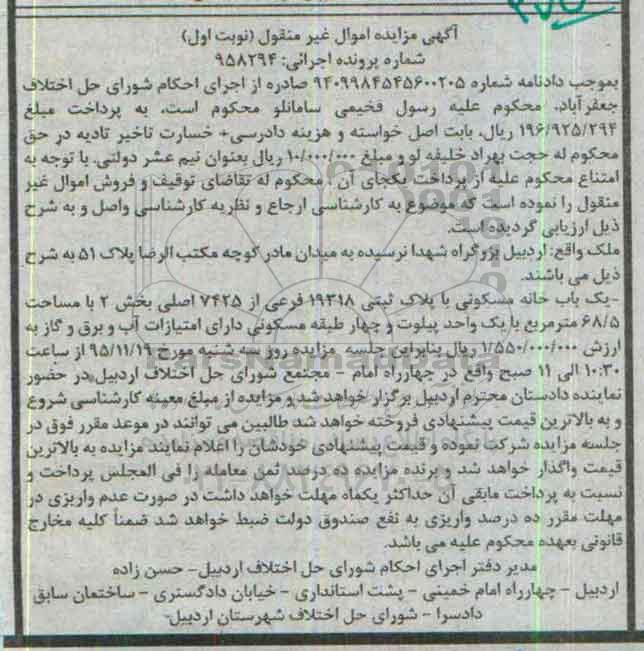 آگهی مزایده اموال غیر منقول (نوبت اول)
شماره پرونده اجرائی: ۹۵۸۲۹۴
بموجب دادنامه شماره ۹۴۰۹۹۸۴۵۴۵۶۰۰۲۰۵ صادره از اجرای احکام شورای حل اختلاف
جعفرآباد، محکوم علیه رسول فخیمی سامانلو محکوم است، به پرداخت مبلغ
۱۹۶/۹۲۵/۲۹۴ ریال، بابت اصل خواسته و هزینه دادرسی+ خسارت تاخیر تادیه در حق
محکوم له حجت بهراد خلیفه لو و مبلغ ۱۰/۰۰۰/۰۰۰ ریال بعنوان نیم عشر دولتی. با توجه به
امتناع محکوم علیه از پرداخت یکجای آن، محکوم له تقاضای توقیف و فروش اموال غیر
منقول را نموده است که موضوع به کارشناسی ارجاع و نظریه کارشناسی واصل و به شرح
ذیل ارزیابی گردیده است.
ملک واقع: اردبیل بزرگراه شهدا نرسیده به میدان مادر کوچه مکتب الرضا پلاک ۵۱ به شرح
ذیل می باشند.
-یک باب خانه مسکونی با پلاک ثبتی ۱۹۳۱۸ فرعی از ۷۴۲۵ اصلی بخش ۲ با مساحت
۶۸/۵ مترمربع با یک واحد پیلوت و چهار طبقه مسکونی دارای امتیازات آب و برق و گاز به
ارزش ۱/۵۵۰/۰۰۰/۰۰۰ ریال بنابراین جلسه مزایده روز سه شنبه مورخ ۹۵/۱۱/۱۹ از ساعت
۱۰:۳۰ الی ۱۱ صبح واقع در چهارراه امام - مجتمع شورای حل اختلاف اردبیل در حضور
نماینده دادستان محترم اردبیل برگزار خواهد شد و مزایده از مبلغ معینه کارشناسی شروع
و به بالاترین قیمت پیشنهادی فروخته خواهد شد طالبین می توانند در موعد مقرر فوق در
جلسه مزایده شرکت نموده و قیمت پیشنهادی خودشان را اعلام نمایند مزایده به بالاترین
قیمت واگذار خواهد شد و برنده مزایده ده درصد ثمن معامله را فی المجلس پرداخت و
نسبت به پرداخت مابقی آن حداکثر یکماه مهلت خواهد داشت در صورت عدم واریزی در
مهلت مقرر ده درصد واریزی به نفع صندوق دولت ضبط خواهد شد ضمناً کلیه مخارج
قانونی بعهده محکوم علیه می باشد.
مدیر دفتر اجرای احکام شورای حل اختلاف اردبیل- حسن زاده
اردبیل - چهارراه امام خمینی - پشت استانداری - خیابان دادگستری - ساختمان سابق
دادسرا - شورای حل اختلاف شهرستان اردبیل